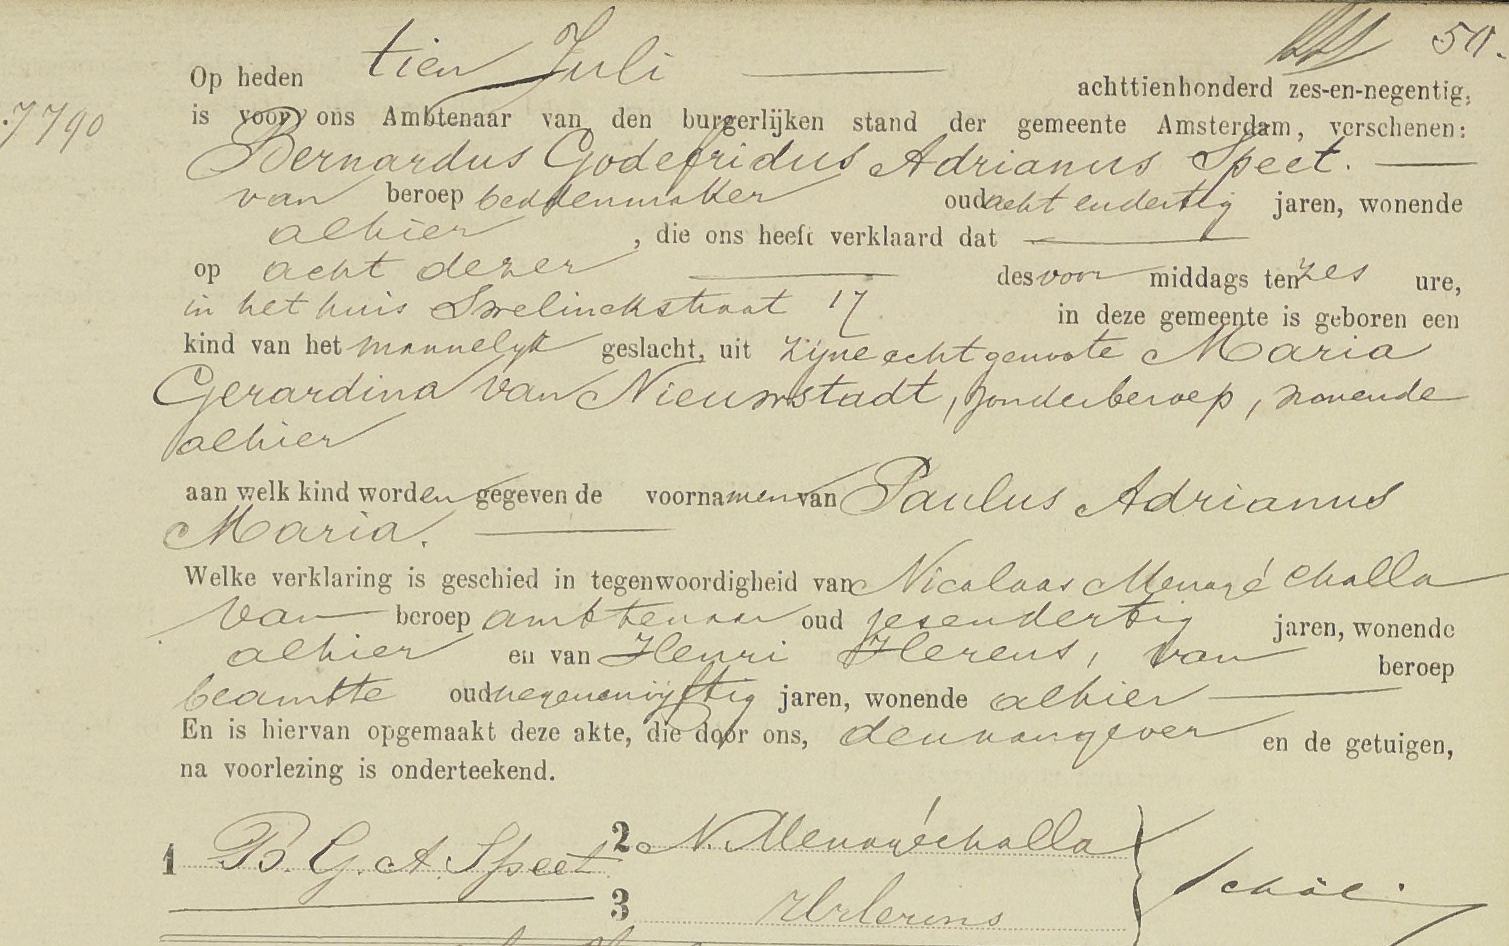 50.
Op heden tien Juli achttienhonderd zes-en-negentig,
7790
is voor ons Ambtenaar van den burgerlijken stand der gemeente Amsterdam, verschenen:
Bernardus Godefridus Adrianus Speet.
van beroep beddenmaker oud acht endertig jaren, wonende
alhier, die ons heeft verklaard dat
op acht dezer des voor middags ten zes ure,
in het huis Swelinckstraat 17 in deze gemeente is geboren een
kind van het mannelyk geslacht, uit zijne echtgenoote Maria
Gerardina van Nieuwstadt, zonder beroep, wonende
alhier
aan welk kind worden gegeven de voornamen van Paulus Adrianus
Maria.
Welke verklaring is geschied in tegenwoordigheid van Nicolaas Menagé Challa
van beroep ambtenaar oud zesendertig jaren, wonende
alhier en van Henri Herens, van beroep
beambte oud negenenvijftig jaren, wonende alhier
En is hiervan opgemaakt deze akte, die door ons, den aangever en de getuigen,
na voorlezing is onderteekend.
1 B. G. A. Speet 2 N. Menagé Challa
3